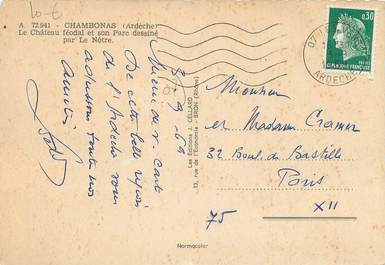 10-6
A. 72.941 - CHAMBONAS (Ardèche)
Le Château féodal et son Parc dessiné
par Le Nôtre.
De cette belle région
de l'Ardèche vous
adressons toute nos
amitiés
Les Editions J. CELLARD
13, rue de l'Economie - BRON (Rhône)
Normacolor
0,30
07
ARDECHE
Monsieur
et Madame Cramer
32 Boul. de Bastille
Paris
XII
75